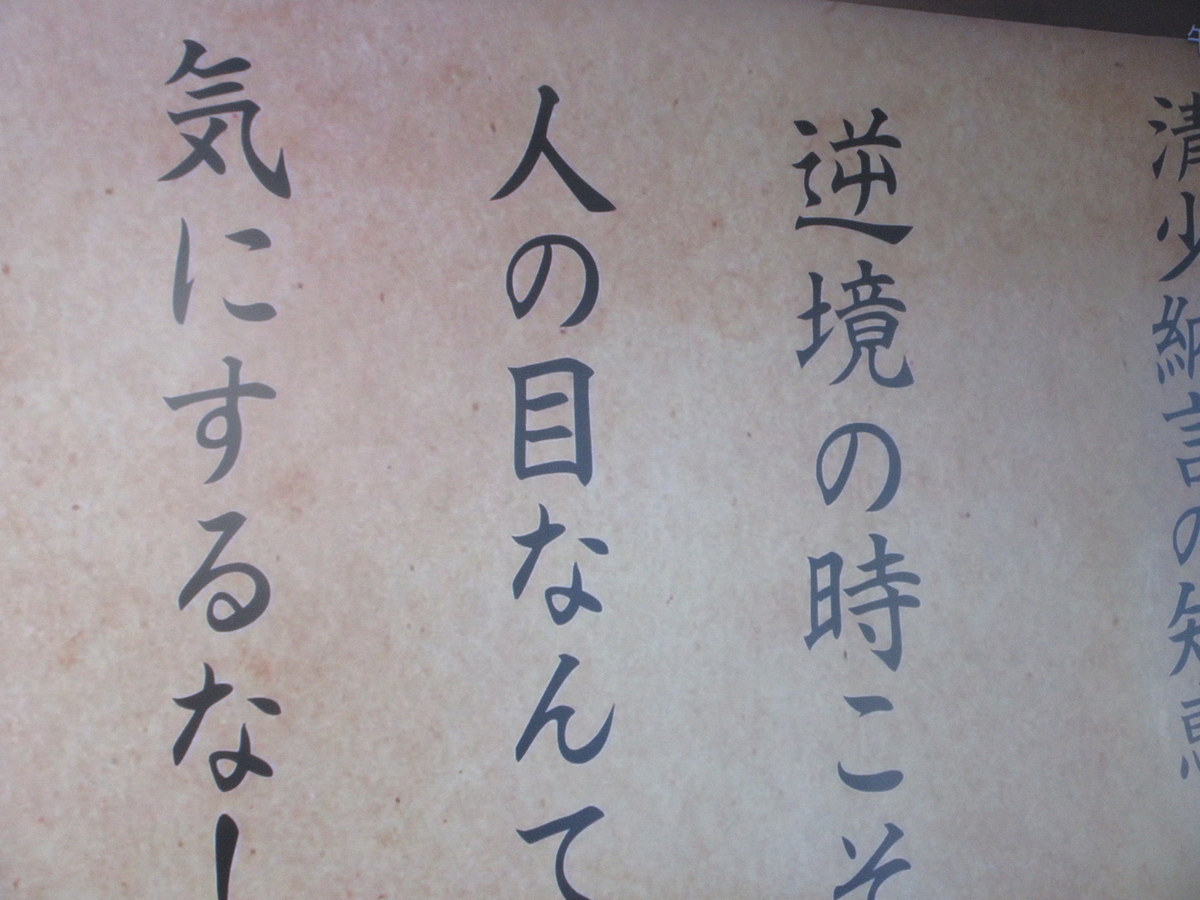 清少納言の知恵
逆境の時こそ
人の目なんて
気にするな！